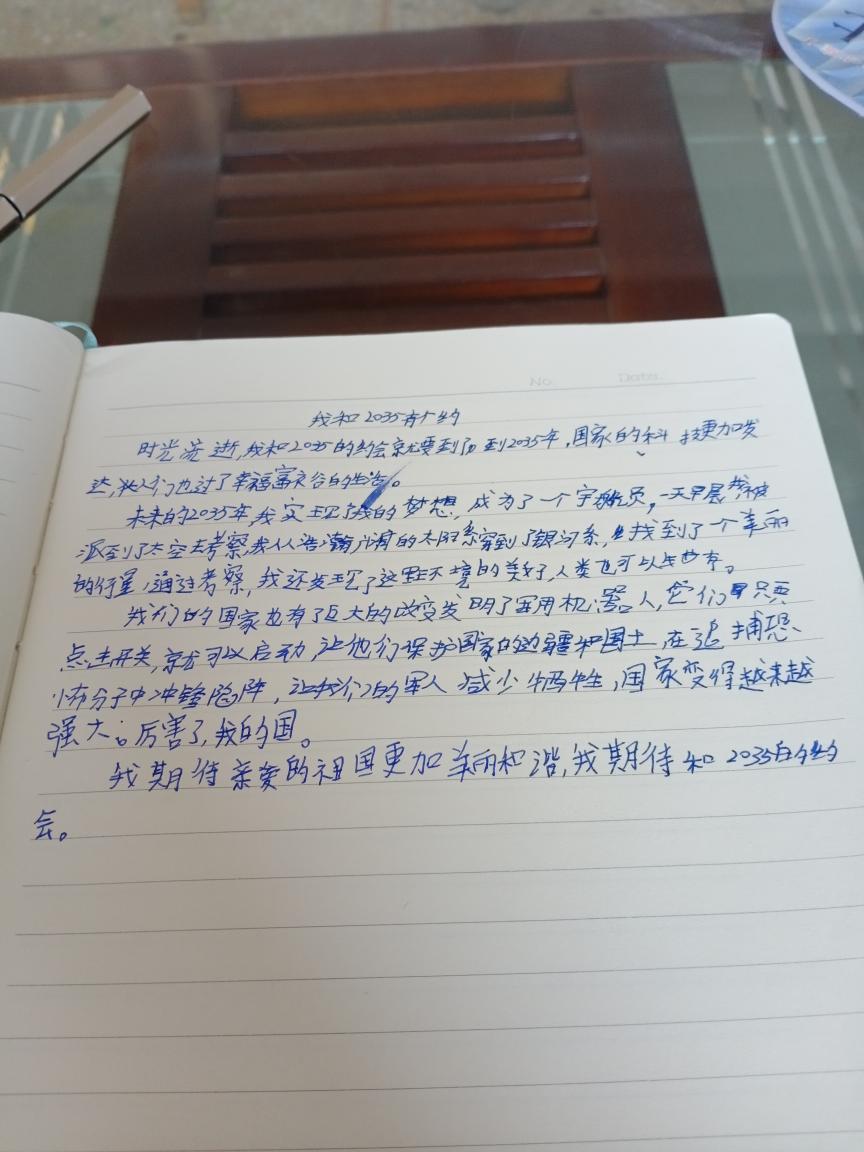 No. Date.
我和2035有个约
时光流逝,我和2035的约会就要到了,到2035年,国家的科技更加发
达,人们也过了幸福富裕的生活。
未来的2035年,我实现了我的梦想,成为了一个宇航员,一天早晨,我被
派到了太空去考察,我从浩瀚的太阳系穿到了银河系,找到了一个美丽
的行星,通过考察,我还发现了这里环境的美好,人类也可以生存。
我们的国家也有了巨大的改变发明了军用机器人,它们只要
点击开关,就可以启动,让他们保护国家的边疆和国土,在追捕恐
怖分子中冲锋陷阵,让我们的军人减少牺牲,国家变得越来越
强大。厉害了,我的国。
我期待亲爱的祖国更加美丽和谐,我期待和2035有个约
会。